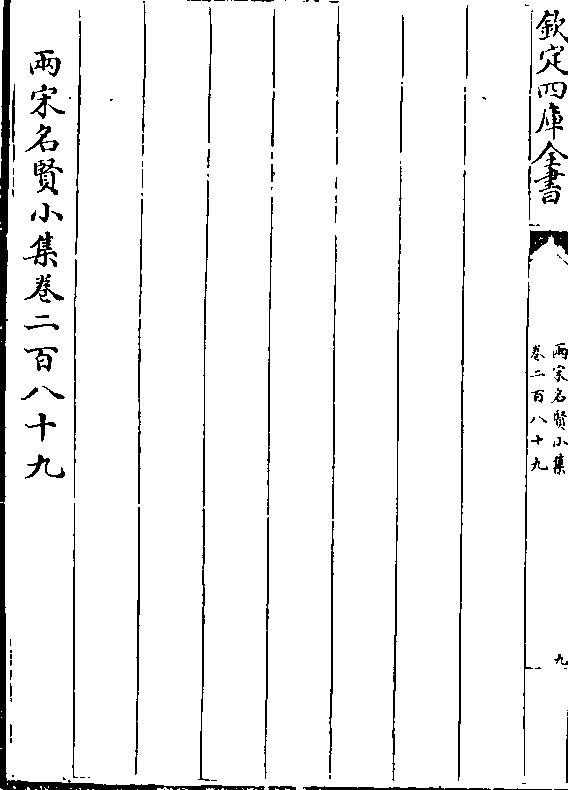 欽定四庫全書
兩宋名賢小集
卷二百八十九
九
兩宋名賢小集卷二百八十九